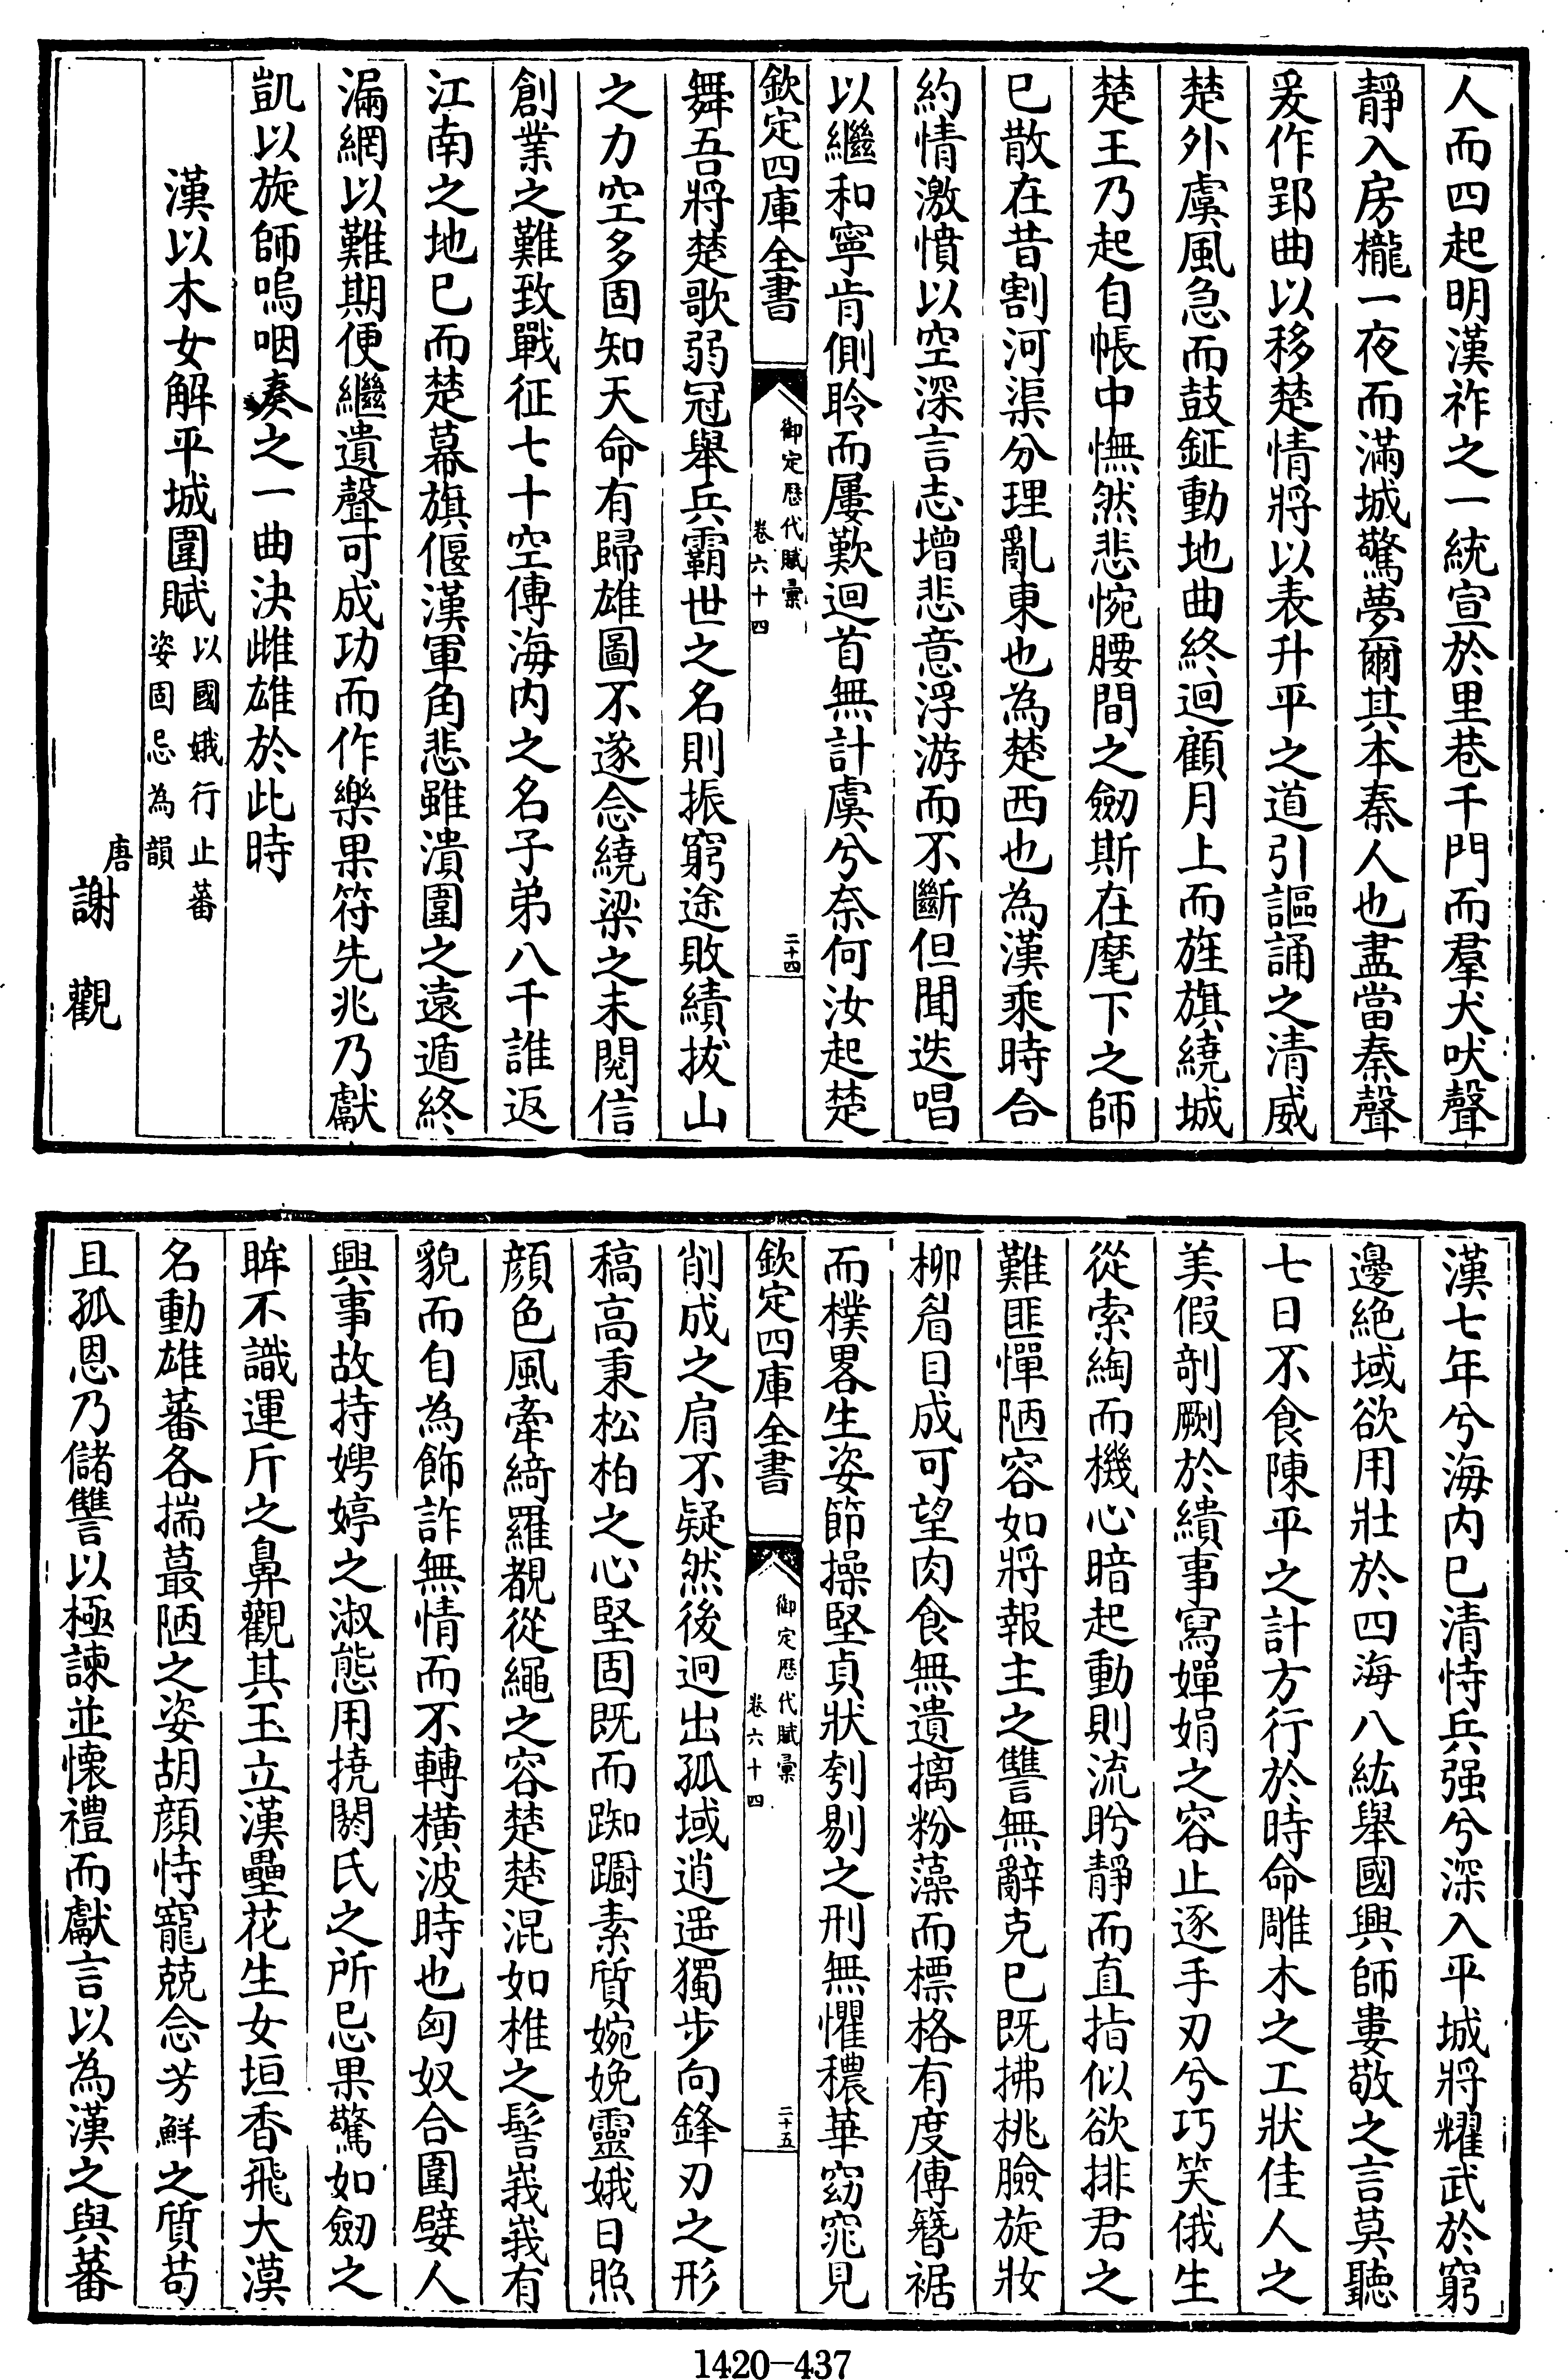 人而四起明漢祚之一統宣於里巷千門而羣犬吠聲
靜入房櫳一夜而滿城驚夢爾其本秦人也盡當秦聲
爰作郢曲以移楚情將以表升平之道引謳誦之清威
楚外虞風急而鼓鉦動地曲終迴顧月上而旌旗繞城
楚王乃起自帳中憮然悲惋腰間之劒斯在麾下之師
巳散在昔割河渠分理亂東也為楚西也為漢乘時合
約情激憤以空深言志增悲意浮游而不斷但聞迭唱
以繼和寧肯側聆而屢歎迴首無計虞兮奈何汝起楚
欽定四庫全書
御定歷代賦彙
卷六十四
二十四
舞吾將楚歌弱冠舉兵霸世之名則振窮途敗績拔山
之力空多固知天命有歸雄圖不遂念繞梁之未閱信
創業之難致戰征七十空傳海内之名子弟八千誰返
江南之地巳而楚幕旗偃漢軍角悲雖潰圍之遠遁終
漏網以難期便繼遺聲可成功而作樂果符先兆乃獻
凱以旋師嗚咽奏之一曲決雌雄於此時
漢以木女解平城圍賦
以國娥行止蕃
姿固忌為韻
唐
謝觀
漢七年兮海内巳清恃兵强兮深入平城將耀武於窮
邊絶域欲用壯於四海八紘舉國興師婁敬之言莫聽
七日不食陳平之計方行於時命雕木之工狀佳人之
美假剞劂於繢事寫嬋娟之容止逐手刃兮巧笑俄生
從索綯而機心暗起動則流眄靜而直指似欲排君之
難匪憚陋容如將報主之讐無辭克巳既拂桃臉旋妝
柳眉目成可望肉食無遺摛粉藻而標格有度傅簪裾
而樸畧生姿節操堅貞狀刳剔之刑無懼穠華窈窕見
欽定四庫全書
御定歷代賦彙
卷六十四
二十五
削成之肩不疑然後迥出孤域逍遥獨步向鋒刃之形
稿高秉松柏之心堅固既而踟躕素質婉娩靈娥日照
顔色風牽綺羅覩從繩之容楚楚混如椎之髻峩峩有
貌而自為飾詐無情而不轉横波時也匈奴合圍嬖人
興事故持娉婷之淑態用撓閼氏之所忌果驚如劒之
眸不識運斤之鼻觀其玉立漢壘花生女垣香飛大漠
名動雄蕃各揣蕞陋之姿胡顔恃寵兢念芳鮮之質苟
且孤恩乃儲讐以極諫並懐禮而獻言以為漢之與蕃
1420-437